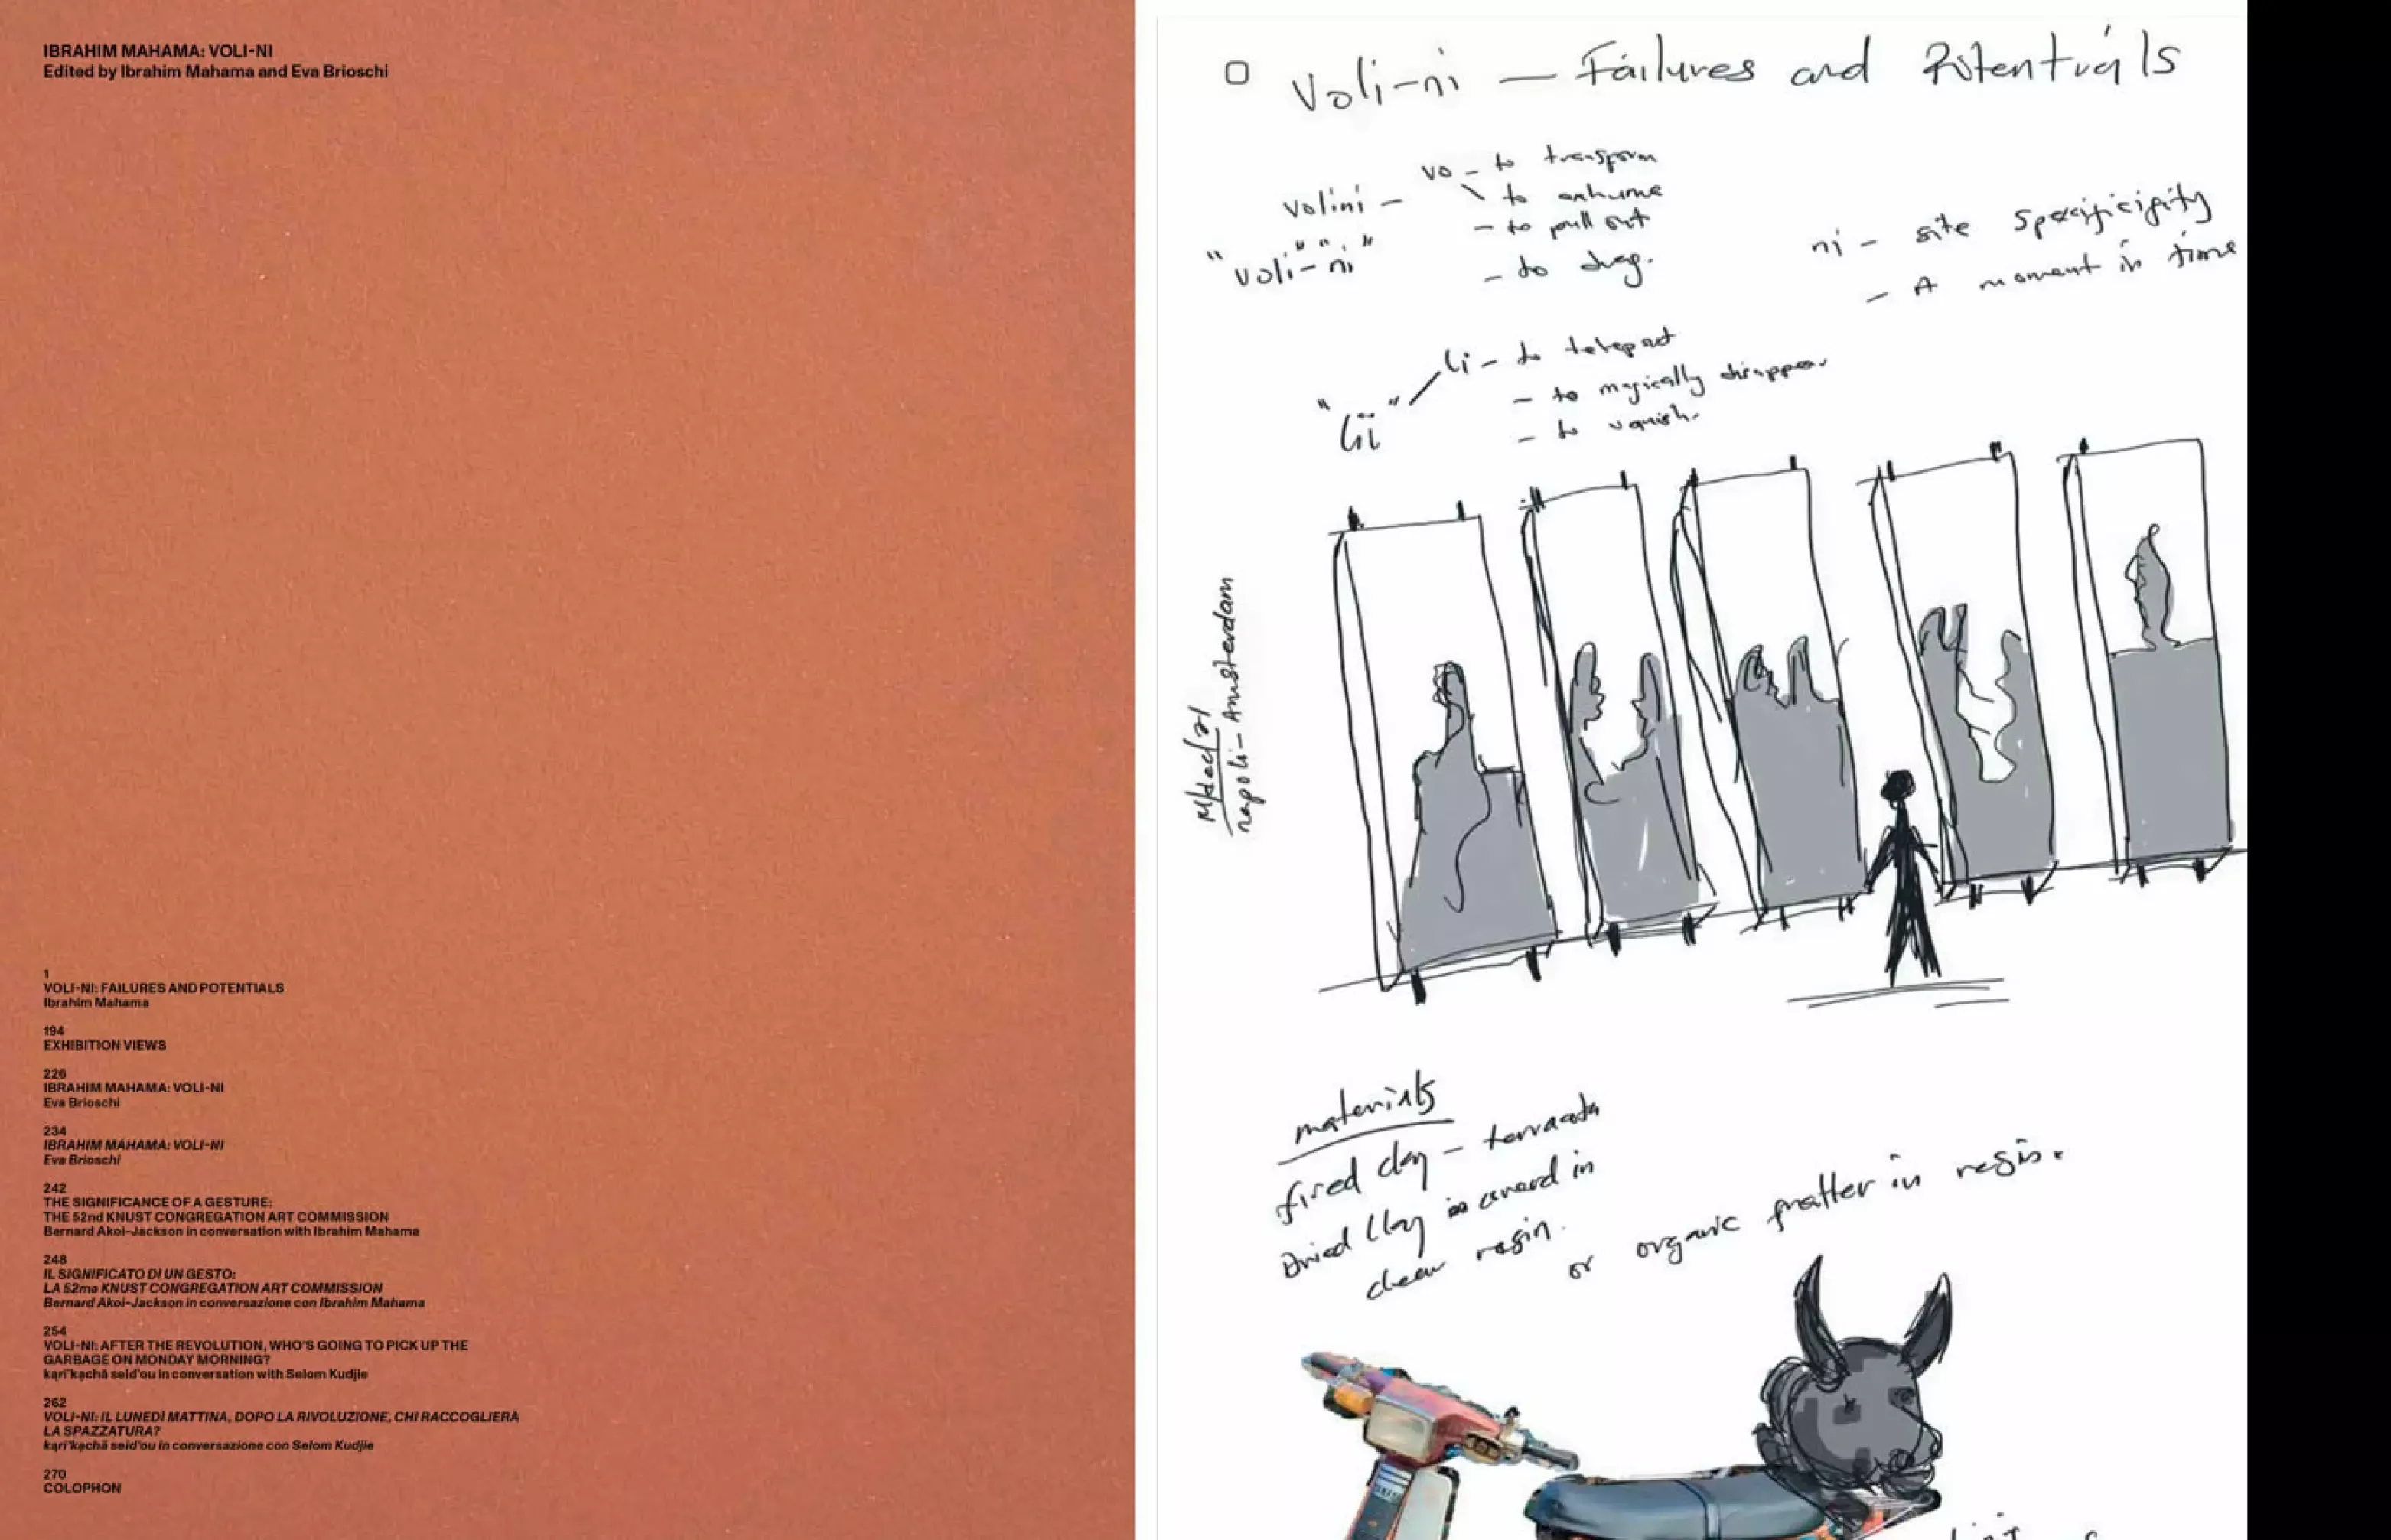 IBRAHIM MAHAMA: VOLI-NI
Edited by Ibrahim Mahama and Eva Brioschi
1
VOLI-NI: FAILURES AND POTENTIALS
Ibrahim Mahama
194
EXHIBITION VIEWS
226
IBRAHIM MAHAMA: VOLI-NI
Eva Brioschi
234
IBRAHIM MAHAMA: VOLI-NI
Eva Brioschi
242
THE SIGNIFICANCE OF A GESTURE:
THE 52nd KNUST CONGREGATION ART COMMISSION
Bernard Akoi-Jackson in conversation with Ibrahim Mahama
248
IL SIGNIFICATO DI UN GESTO:
LA 52ma KNUST CONGREGATION ART COMMISSION
Bernard Akoi-Jackson in conversazione con Ibrahim Mahama
254
VOLI-NI: AFTER THE REVOLUTION, WHO'S GOING TO PICK UP THE
GARBAGE ON MONDAY MORNING?
kąrî'kạchä seid'ou in conversation with Selom Kudjie
262
VOLI-NI: IL LUNEDÌ MATTINA, DOPO LA RIVOLUZIONE, CHI RACCOGLIERÀ
LA SPAZZATURA?
kąrî'kạchä seid'ou in conversazione con Selom Kudjie
270
COLOPHON
Voli-ni — Failures and Potentials
volini - vo - to transform
- to exhume
"voli-ni" - to pull out
- to drag.
ni - site specificigity
- A moment in time
"lii" li - to teleport
- to magically disappear
- to vanish.
napoli - Amsterdam
materials
fired clay - terracota
Dried Clay covered in
clear resin.
or organic matter in resin.